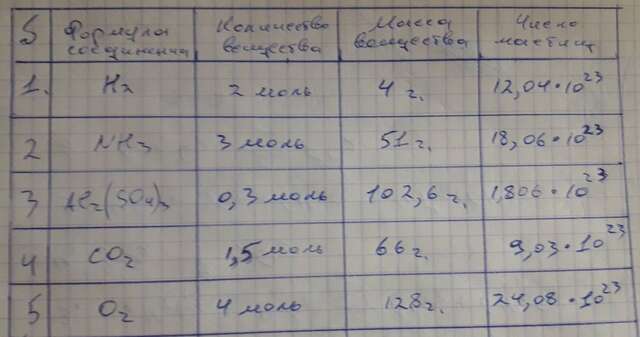 S Формула соединения Количество вещества Масса вещества Число частиц
1. H₂ 2 моль 4 г. 12,04•10²³
2 NH₃ 3 моль 51 г. 18,06•10²³
3 Al₂(SO₄)₃ 0,3 моль 102,6 г. 1,806•10²³
4 CO₂ 1,5 моль 66 г. 9,03•10²³
5 O₂ 4 моль 128 г. 24,08•10²³